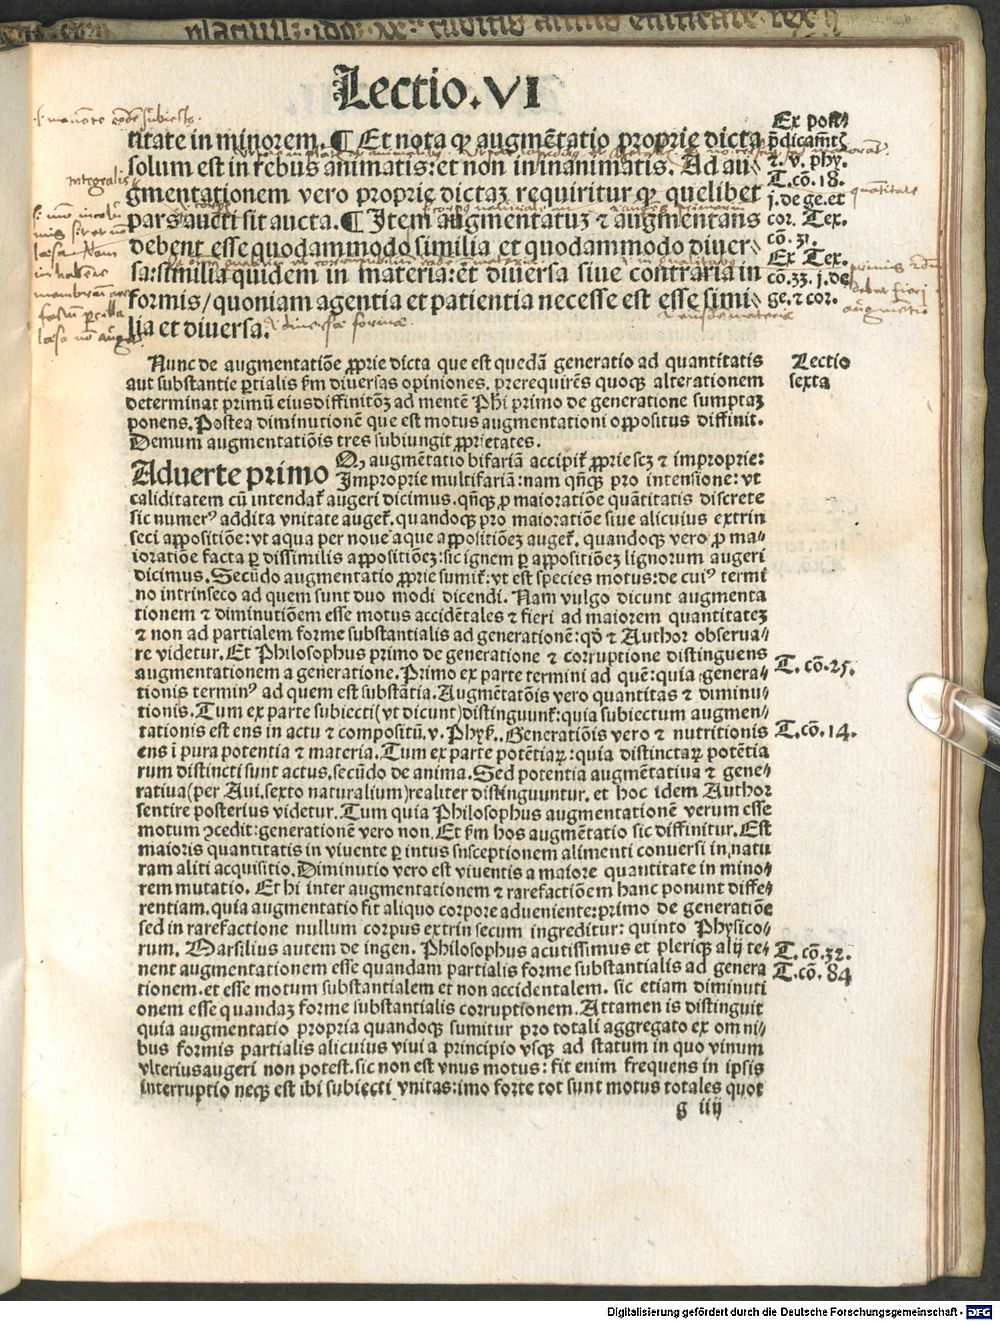 Lectio. VI
titate in minorem. ¶ Et nota ꝙ augmẽtatio proprie dicta
solum est in rebus animatis: et non in inanimatis. Ad au⸗
gmentationem vero proprie dictaʒ requiritur ꝙ quelibet
pars aucti sit aucta. ¶ Item augmentatuʒ ⁊ augmentans
debent esse quodammodo similia et quodammodo diuer⸗
sa: similia quidem in materia: et diuersa siue contraria in
formis/ quoniam agentia et patientia necesse est esse simi⸗
lia et diuersa.
Ex post⸗
p̄dicamẽt
⁊. v. phy.
T. cõ. 18.
j. de ge. et
cor. Tex.
cõ. 31.
Ex Tex.
cõ. 33. j. de
ge. ⁊ cor.
integralis
quãtitate
Nunc de augmentatiõe ꝓprie dicta que est quedã generatio ad quantitatis
aut substantie ꝑtialis ẜm diuersas opiniones. prerequirẽs quoqꝫ alterationem
determinat primũ eius diffinitõeʒ ad mentẽ Phi primo de generatione sumptaʒ
ponens. Postea diminutionẽ que est motus augmentationi oppositus diffinit.
Demum augmentatiõis tres subiungit ꝓprietates.
Lectio
sexta
Aduerte primo Q, augmẽtatio bifariã accipit̃ ꝓprie scʒ ⁊ improprie:
Improprie multifariã: nam qñqꝫ pro intensiõe: vt
caliditatem cũ intendat̃ augeri dicimus. qñqꝫ ꝓ maioratiõe quãtitatis discrete
sic numerꝰ addita vnitate auget̃. quandoqꝫ pro maioratiõe siue alicuius extrin
seci appositiõe: vt aqua per noue aque appositiõeʒ auget̃. quandoqꝫ vero ꝓ ma⸗
ioratiõe facta ꝑ dissimilis appositiõeʒ: sic ignem ꝑ appositiõeʒ lignorum augeri
dicimus. Secũdo augmentatio ꝓprie sumit̃: vt est species motus: de cuiꝰ termi
no intrinseco ad quem sunt duo modi dicendi. Nam vulgo dicunt augmenta
tionem ⁊ diminutiõem esse motus accidẽtales ⁊ fieri ad maiorem quantitateʒ
⁊ non ad partialem forme substantialis ad generationẽ: qð ⁊ Author obserua⸗
re videtur. Et Philosophus primo de generatione ⁊ corruptione distinguens
augmentationem a generatione. Primo ex parte termini ad quẽ: quia genera⸗
tionis terminꝰ ad quem est substãtia. Augmẽtatõis vero quantitas ⁊ diminu⸗
tionis. Tum ex parte subiecti (vt dicunt) distinguunt̃: quia subiectum augmen⸗
tationis est ens in actu ⁊ compositũ. v. Phyſ.. Generatiõis vero ⁊ nutritionis
ens ĩ pura potentia ⁊ materia. Tum ex parte potẽtiaꝝ: quia distinctaꝝ potẽtia
rum distincti sunt actus. secũdo de anima. Sed potentia augmẽtatiua ⁊ gene⸗
ratiua (per Aui. sexto naturalium) realiter distinguuntur. et hoc idem Author
sentire posterius videtur. Tum quia Philosophus augmentationẽ verum esse
motum ↄcedit: generationẽ vero non. Et ẜm hos augmẽtatio sic diffinitur. Est
maioris quantitatis in viuente ꝑ intus susceptionem alimenti conuersi in natu
ram aliti acquisitio. Diminutio vero est viuentis a maiore quantitate in mino⸗
rem mutatio. Et hi inter augmentationem ⁊ rarefactiõem hanc ponunt diffe⸗
rentiam. quia augmentatio fit aliquo corpore adueniente: primo de generatiõe
sed in rarefactione nullum corpus extrinsecum ingreditur: quinto Physico⸗
rum. Marsilius autem de ingen. Philosophus acutissimus et pleriqꝫ alij te⸗
nent augmentationem esse quandam partialis forme substantialis ad genera
tionem. et esse motum substantialem et non accidentalem. sic etiam diminuti
onem esse quandaʒ forme substantialis corruptionem. Attamen is distinguit
quia augmentatio propria quandoqꝫ sumitur pro totali aggregato ex omni⸗
bus formis partialis alicuius viui a principio vsqꝫ ad statum in quo viuum
vlterius augeri non potest. sic non est vnus motus: fit enim frequens in ipsis
interruptio neqꝫ est ibi subiecti vnitas: imo forte tot sunt motus totales quot
T. cõ. 25.
T. cõ. 14.
T. cõ. 32.
T. cõ. 84
g iiij
Digitalisierung gefördert durch die Deutsche Forschungsgemeinschaft - DFG